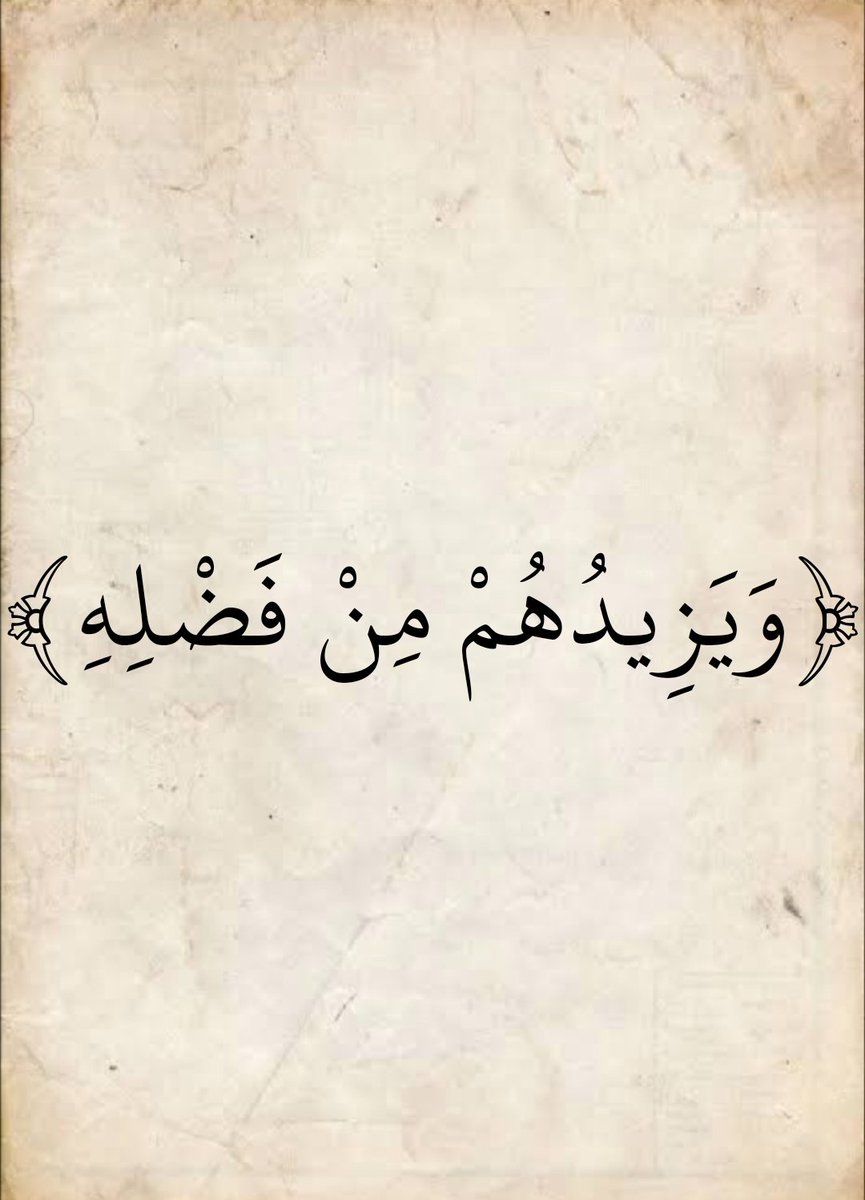 ﴿ وَيَزِيدُهُمْ مِنْ فَضْلِهِ ﴾